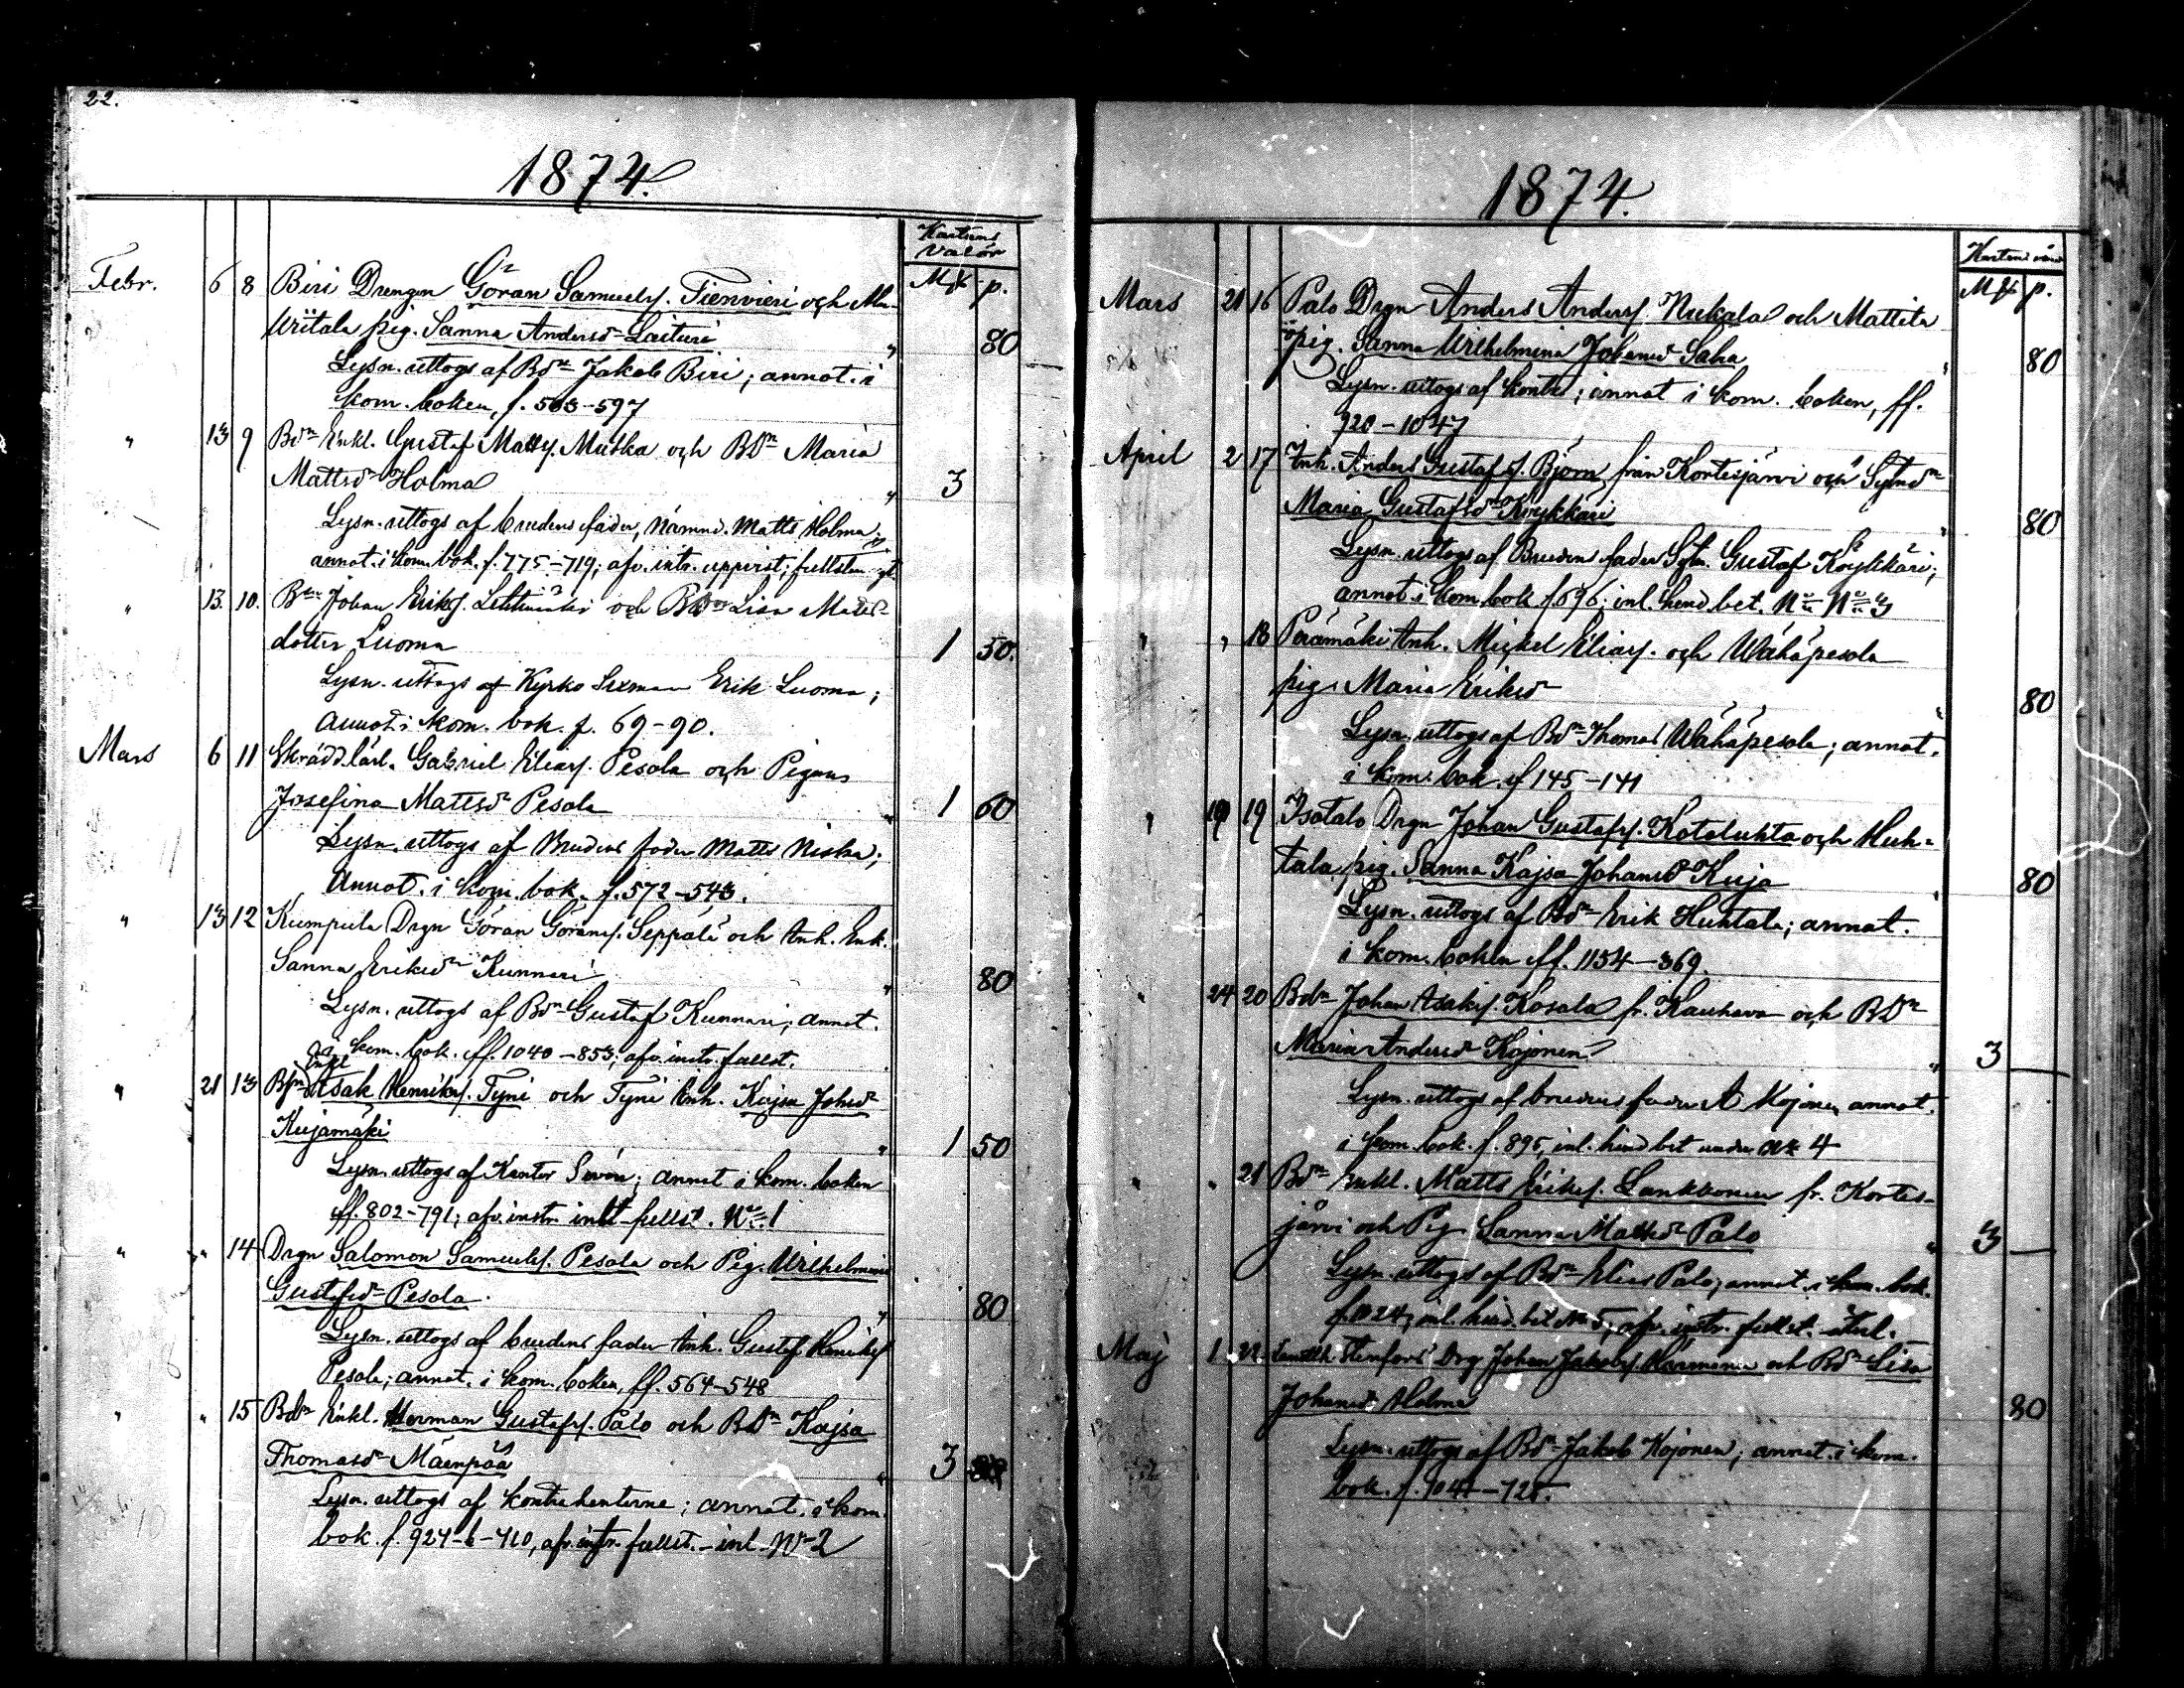 22.
1874.
Kartans
Valör
Febr. 6 8 Biri Drengen Göran Samuelsf. Tienvieri och Ala-
Mk p.
Wiitala pig. Sanna Andersdr Laituri " 80
Lysn. uttogs af Bdn Jakob Biri; annot. i
kom. boken, f. 563-597
" 13 9 Bdn Enkl. Gustaf Mattsf. Mutka och BDn Maria
Mattsdr Holma " 3
Lysn. uttogs af brudens fader, Nämnd. Matts Holma;
annot. i kom. bok. f. 775-719; afv. intr. uppvist; fullst.
" 13. 10. Bdn Johan Eriksf. och BDn Lisa Matts-
dotter Luoma 1 50.
Lysn. uttogs af Kyrko Sexman Erik Luoma;
annot. i kom. bok. f. 69-90.
Mars 6 11 Skrädd.lärl. Gabriel Eliasf. Pesola och Pigan
Josefina Mattsdr Pesola " 1 60
Lysn. uttogs af Brudens fader Matts Niska;
Annot. i kom. bok. f. 572-543.
" 13 12 Kumpula Drgn Göran Göransf. Seppälä och Inh. Enk.
Sanna Eriksdr Kunnari " 80
Lysn. uttogs af Bdn Gustaf Kunnari; annot.
i kom. bok. ff. 1040-853; afv. instr. fullst.
" 21 13 Isak Henriksf. Tyni och Tyni Inh. Kajsa Johsdr
Kujamäki " 1 50
Lysn. uttogs af Kantor; annot i kom. boken
ff. 802-791; afv. instr. inl. fullst. No 1
" " 14 Drgn Salomon Samuelsf. Pesola och Pig. Wilhelmina
Gustafsdr Pesola " 80
Lysn. uttogs af brudens fader Inh. Gustaf Henriksf
Pesola; annot. i kom. boken, ff. 564-548
" " 15 Bdn Enkl. Herman Gustafsf. Palo och BDn Kajsa
Thomasdr Mäenpää " 3
Lysn. uttogs af kontrahenterne; annot. i kom.
bok. f. 924, afv. instr. fullst. - inl. No 2
1874.
Mk p.
Mars 21 16 Palo Drgn Anders Andersf. Nukala och Mattila
pig. Sanna Wilhelmina Johansdr Saha " 80
Lysn. uttogs af kontr.; annot i kom. boken, ff.
920-1047
April 2 17 Inh. Anders Gustafsf. Björn från Kortesjärvi och Sytndr
Maria Gustafsdr Köykkäri " 80
Lysn. uttogs af Brudens fader Sytn. Gustaf Köykkäri;
annot. i kom. bok f 696; inl. hind. bet. No 3
" " 18 Perämäki Inh. Mickel Eliasf. och Wähäpesola
pig. Maria Eriksdr " 80
Lysn. uttogs af Bdn Thomas Wähäpesola; annot.
i kom. bok. ff 145-141
" 19 19 Isotalo Drgn Johan Gustafsf. Kotoluhta och Huh-
tala pig. Sanna Kajsa Johansdr Kuja " 80
Lysn. uttogs af Bdn Erik Huhtala; annot.
i kom. boken ff. 1154-369.
" 24 20 Bdn Johan Isaksf. Kosola fr. Kauhava och BDn
Maria Andersdr Kojonen " 3 —
Lysn. uttogs af brudens fader A Kojonen annot.
i kom. bok. f. 895, inl. hind bet under No 4
" " 21 Bdn Enkl. Matts Eriksf. Lankkonen fr. Kortes-
järvi och Pig. Sanna Mattsdr Palo " 3 —
Lysn. uttogs af Bdn Elias Palo; annot. i kom. bok.
f. 1024; inl. hind. bet No 5, afv. instr. fullst.
Maj 1 22 Drg Johan Jakobsf. och Bdr Lisa
Johansdr Holma 80
Lysn. uttogs af Bdn Jakob Kojonen; annot. i kom.
bok. f.